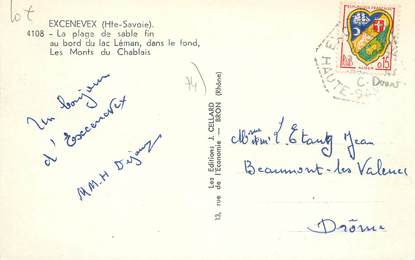 Lot
EXCENEVEX (Hte-Savoie).
4108 - La plage de sable fin
au bord du lac Léman, dans le fond,
Les Monts du Chablais
74)
Un bonjour
d'Excenevex
M.M.H
Les Editions J. CELLARD
13, rue de l'Economie — BRON (Rhône)
0,15
HAUTE-SA
L'Etang Jean
Beaumont-les Valence
Drôme